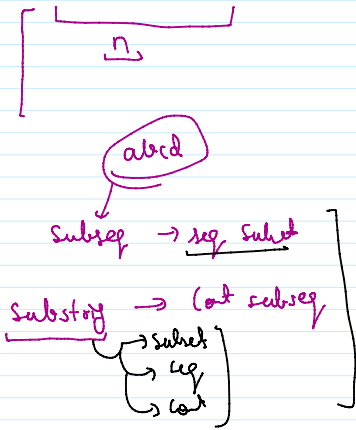 n
abcd
Subseq → seq subset
Substring → Cont subseq
→ Subset
→ seq
→ Cont